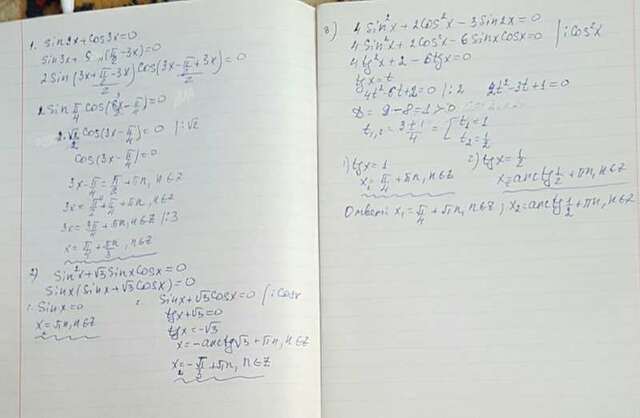 1. Sin3x+Cos3x=0
Sin3x+S (π/2-3x)=0
2Sin(3x+π/2-3x)/2 Cos(3x-π/2+3x)/2=0
2Sin π/4 Cos(3x-π/4)=0
2·√2/2 Cos(3x-π/4)=0 |:√2
Cos(3x-π/4)=0
3x-π/4=π/2+πn, n∈Z
3x=π/2+π/4+πn, n∈Z
3x=3π/4+πn, n∈Z |:3
x=π/4+πn/3, n∈Z
2) Sin²x+√3SinxCosx=0
Sinx(Sinx+√3Cosx)=0
1. Sinx=0
x=πn, n∈Z
2. Sinx+√3Cosx=0 |:Cosx
tgx+√3=0
tgx=-√3
x=-arctg√3+πn, n∈Z
x=-π/3+πn, n∈Z
3) 4Sin²x+2Cos²x-3Sin2x=0
4Sin²x+2Cos²x-6SinxCosx=0 |:Cos²x
4tg²x+2-6tgx=0
tgx=t
4t²-6t+2=0 |:2 2t²-3t+1=0
D=9-8=1>0
t₁,₂=3±1/4=[t₁=1
t₂=1/2
1) tgx=1
x₁=π/4+πn, n∈Z
2) tgx=1/2
x₂=arctg1/2+πn, n∈Z
Ответ: x₁=π/4+πn, n∈Z; x₂=arctg1/2+πn, n∈Z